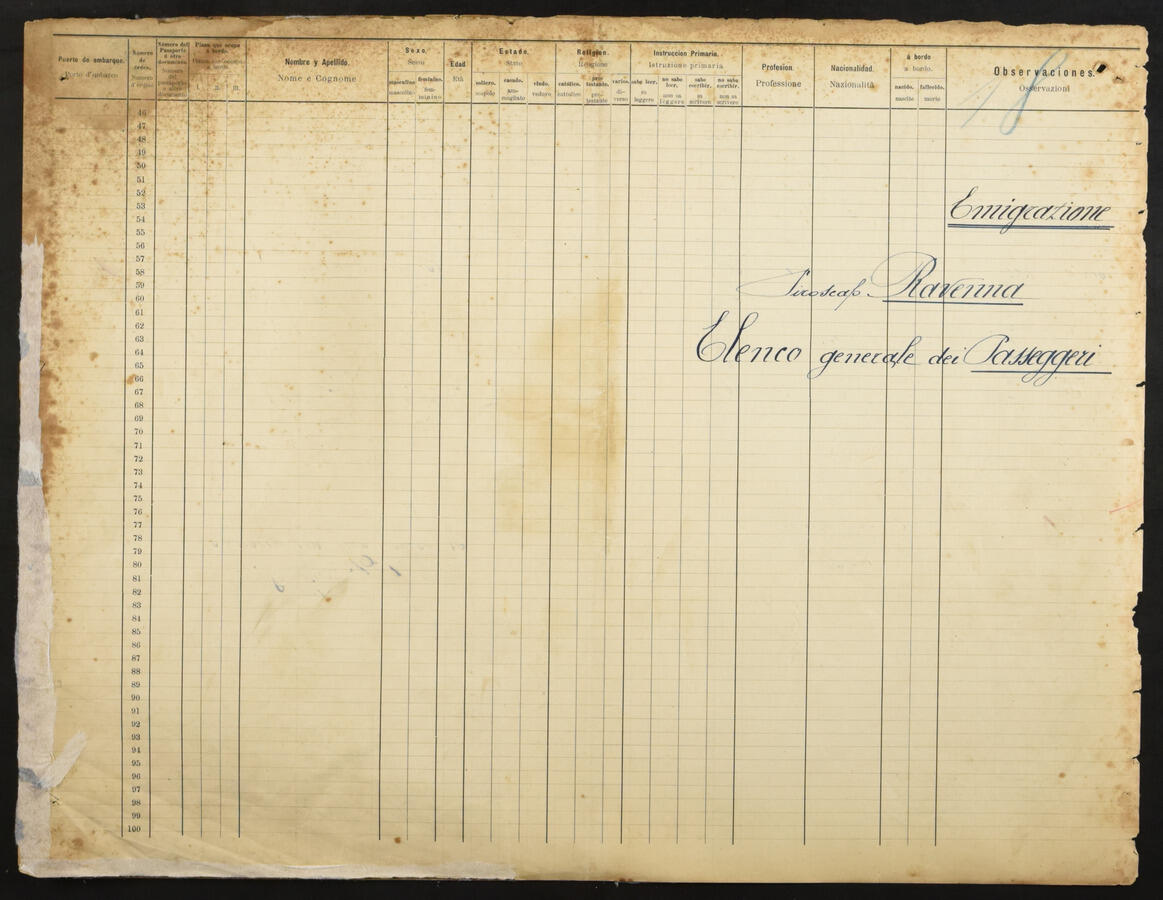 Puerto de embarque.
Porto d'imbarco
Número de orden.
Numero d'ordine
Número del Pasaporte ó otro documento
Plaza que ocupa á bordo.
Nombre y Apellido.
Nome e Cognome
Sexo.
Sesso
masculino
maschile
femenino.
femminino
Edad
Età
Estado.
Stato
soltero.
scapolo
casado.
ammogliato
viudo.
vedovo
Religion.
Religione
católica.
cattolica
protestante.
protestante
varios.
diverse
Instruccion Primaria.
Istruzione primaria
sabe leer.
sa leggere
no sabe leer.
non sa leggere
sabe escribir.
sa scrivere
no sabe escribir.
non sa scrivere
Profesion.
Professione
Nacionalidad.
Nazionalità
á bordo
a bordo.
nacido.
nascite
fallecido.
morte
Observaciones.
Osservazioni
18
46
47
48
49
50
51
52
53
54
55
56
57
58
59
60
61
62
63
64
65
66
67
68
69
70
71
72
73
74
75
76
77
78
79
80
81
82
83
84
85
86
87
88
89
90
91
92
93
94
95
96
97
98
99
100
Emigrazione
Piroscafo Ravenna
Elenco generale dei Passeggeri